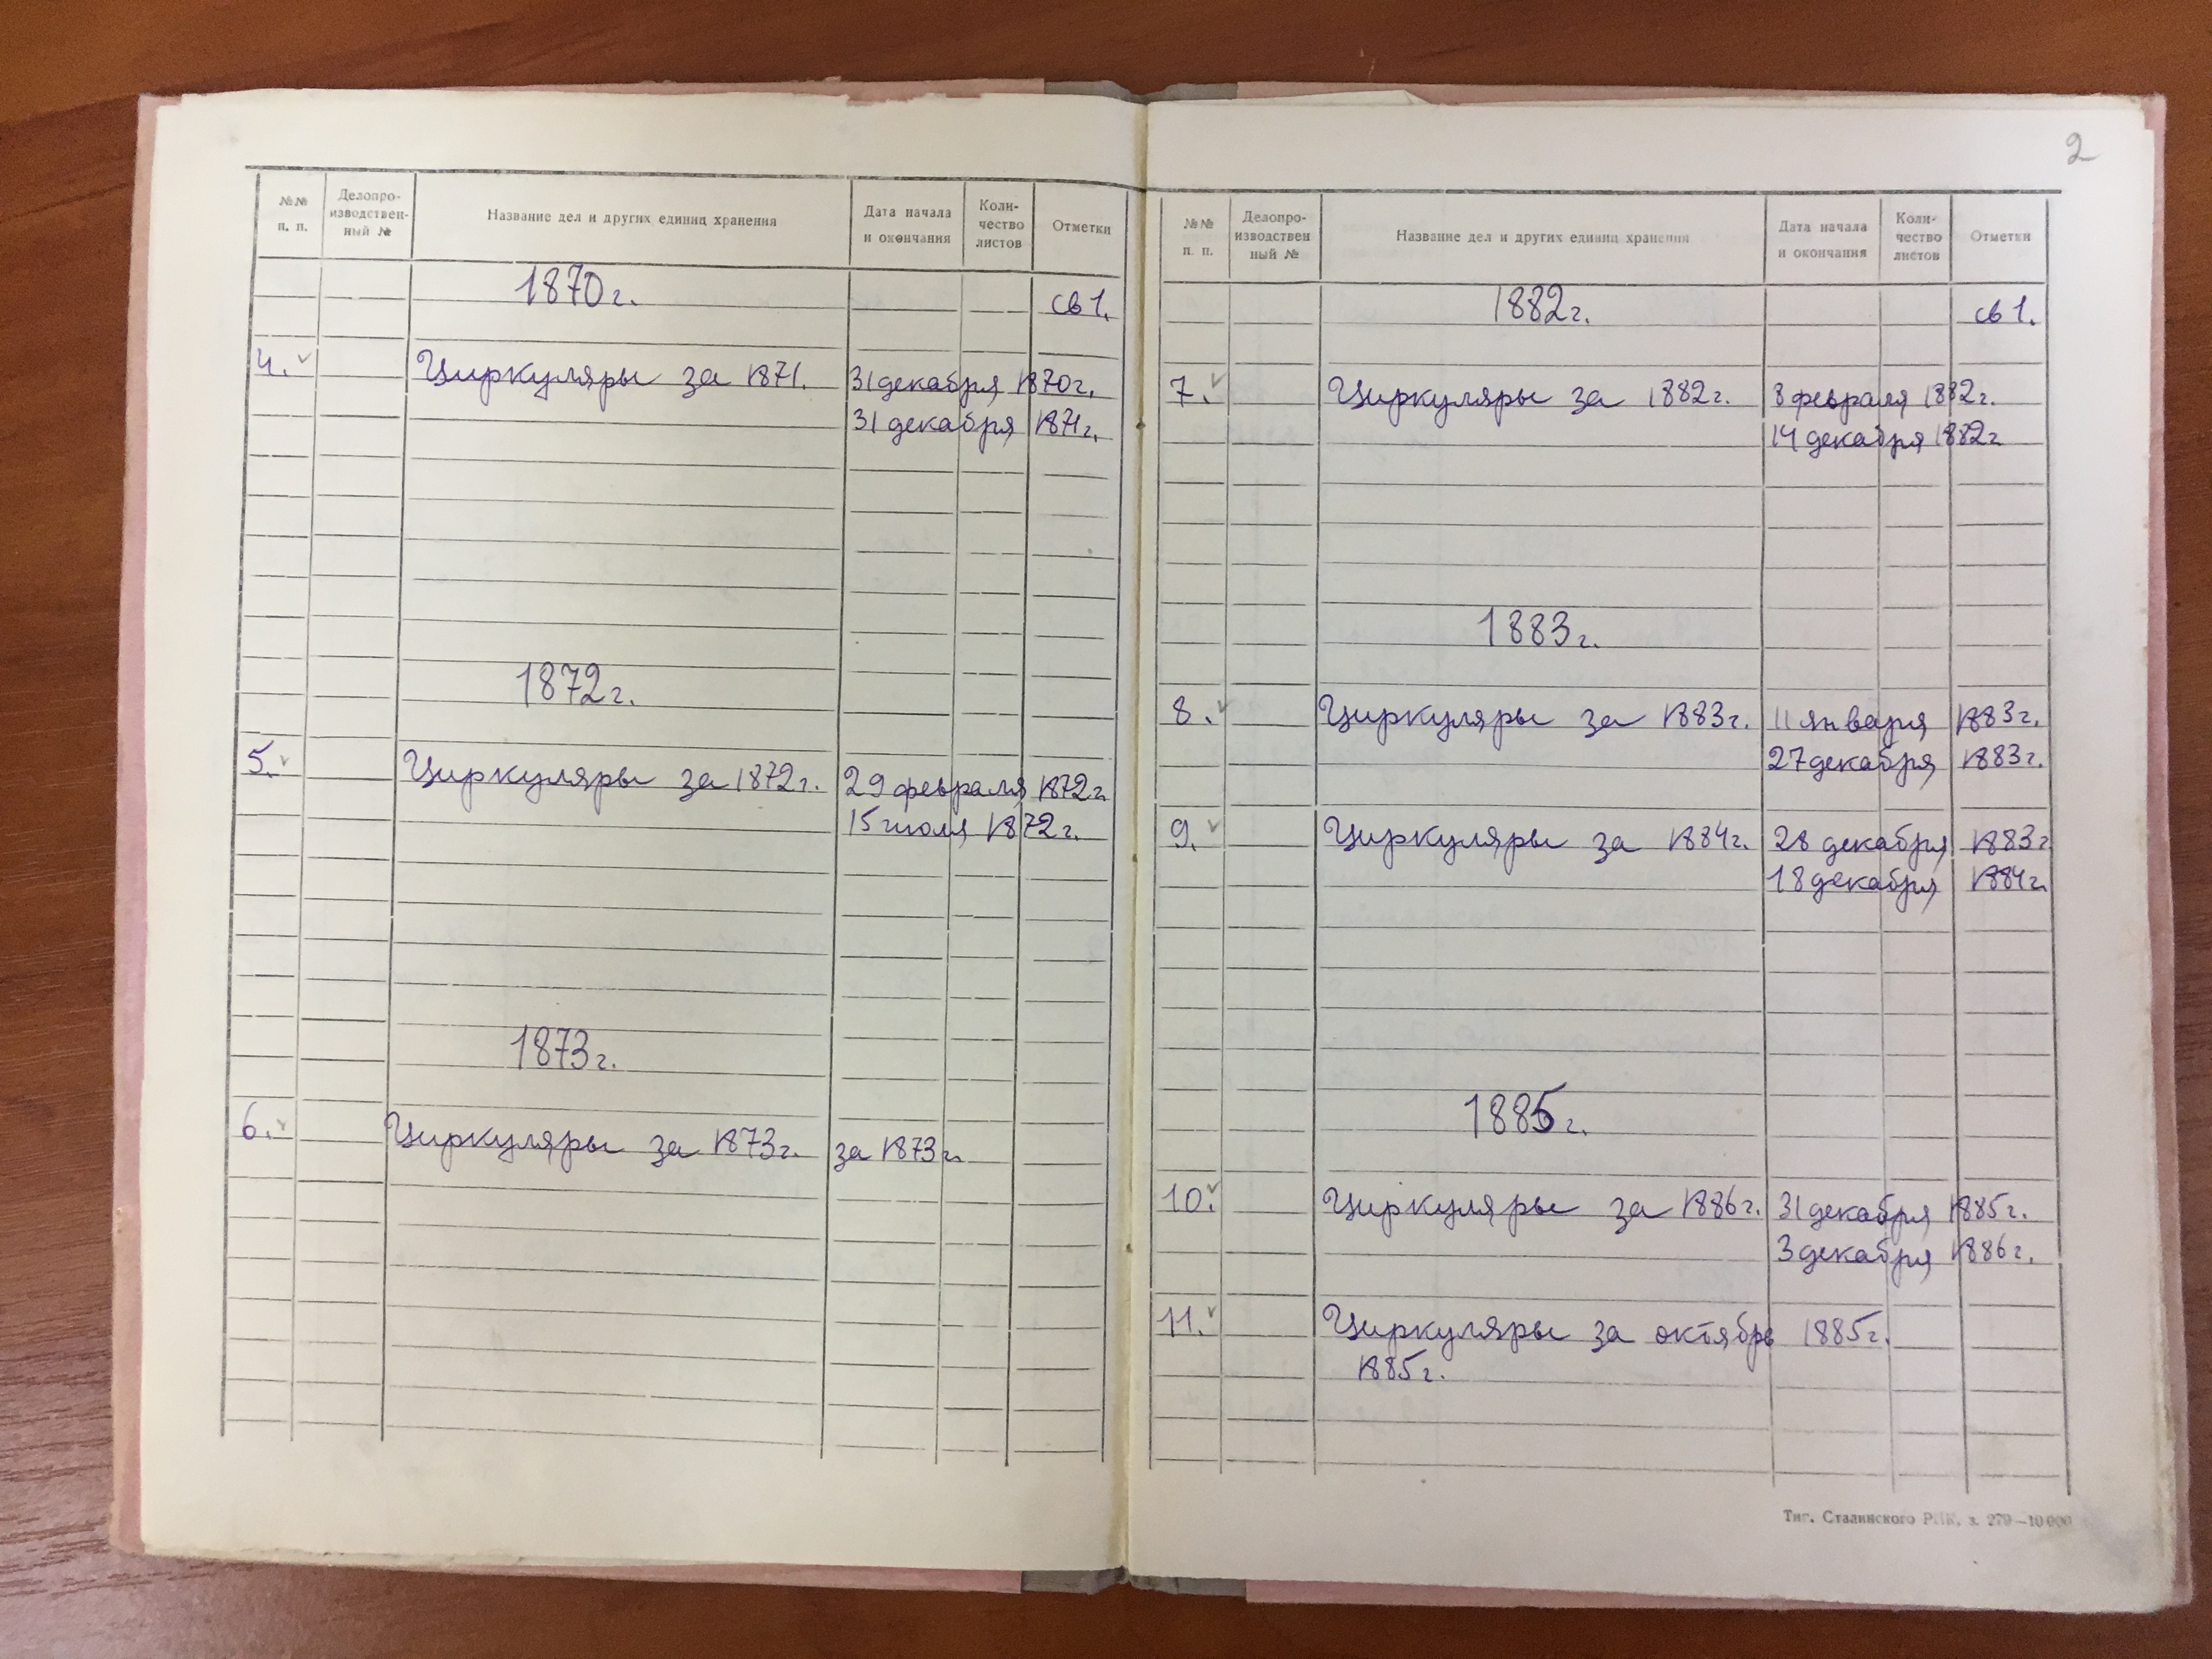 №№ п. п.
Делопро-
изводствен-
ный №
Название дел и других единиц хранения
Дата начала
и окончания
Коли-
чество
листов
Отметки
1870г.
св 1.
4. Циркуляры за 1871. 31 декабря 1870г.
31 декабря 1871г.
1872г.
5. Циркуляры за 1872г. 29 февраля 1872г
15 июля 1872г.
1873г.
6. Циркуляры за 1873г. за 1873г.
2
№№ п. п.
Делопро-
изводствен
ный №
Название дел и других единиц хранения
Дата начала
и окончания
Коли-
чество
листов
Отметки
1882г.
св 1.
7. Циркуляры за 1882г. 8 февраля 1882г.
14 декабря 1882г
1883г.
8. Циркуляры за 1883г. 11 января 1883г.
27 декабря 1883г.
9. Циркуляры за 1884г. 28 декабря 1883г
18 декабря 1884г.
1885г.
10. Циркуляры за 1886г. 31 декабря 1885г.
3 декабря 1886г.
11. Циркуляры за октябрь 1885г.
1885г.
Тиг. Сталинского РПК, з. 279—10000